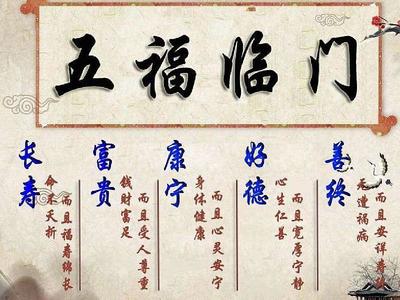 五福临门
长寿
命不夭折
而且福寿绵长
富贵
钱财富足
而且受人尊重
康宁
身体健康
而且心灵安宁
好德
心生仁善
而且宽厚宁静
善终
遭祸病
而且安详